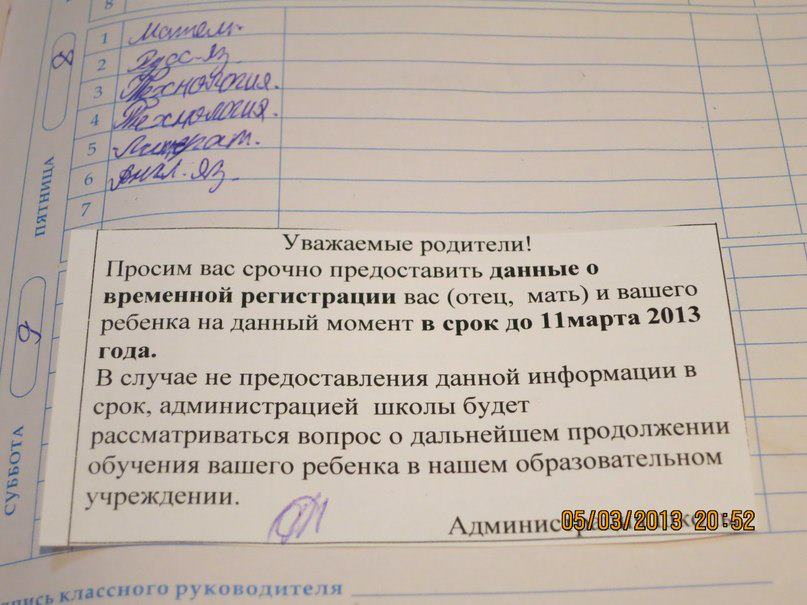 8
ПЯТНИЦА
8
1 Матем.
2 Русс. яз.
3 Технология.
4 Технология.
5 Литерат.
6 Англ. яз.
7
СУББОТА
9
Уважаемые родители!
Просим вас срочно предоставить данные о
временной регистрации вас (отец, мать) и вашего
ребенка на данный момент в срок до 11марта 2013
года.
В случае не предоставления данной информации в
срок, администрацией школы будет
рассматриваться вопрос о дальнейшем продолжении
обучения вашего ребенка в нашем образовательном
учреждении.
05/03/2013 20:52
классного руководителя